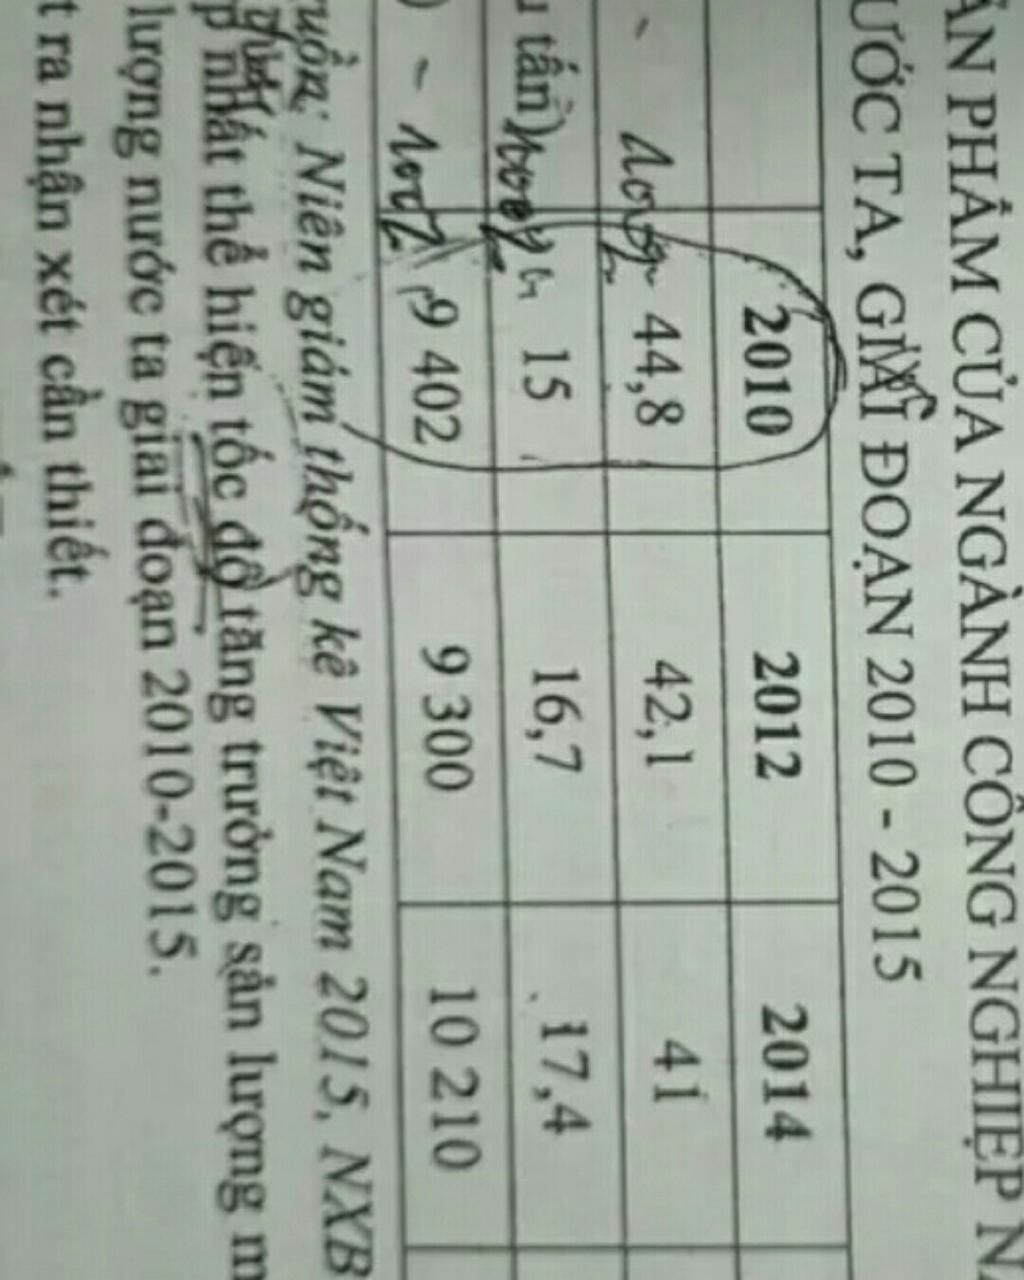 PHẨM CỦA NGÀNH CÔNG NGHIỆP
ƯỚC TA, GIAI ĐOẠN 2010 - 2015
2010 2012 2014
- 100% 44,8 42,1 41
tấn) 100% 15 16,7 17,4
) - 100% 9 402 9 300 10 210
Niên giám thống kê Việt Nam 2015, NXB
nhất thể hiện tốc độ tăng trưởng sản lượng
lượng nước ta giai đoạn 2010-2015.
ra nhận xét cần thiết.